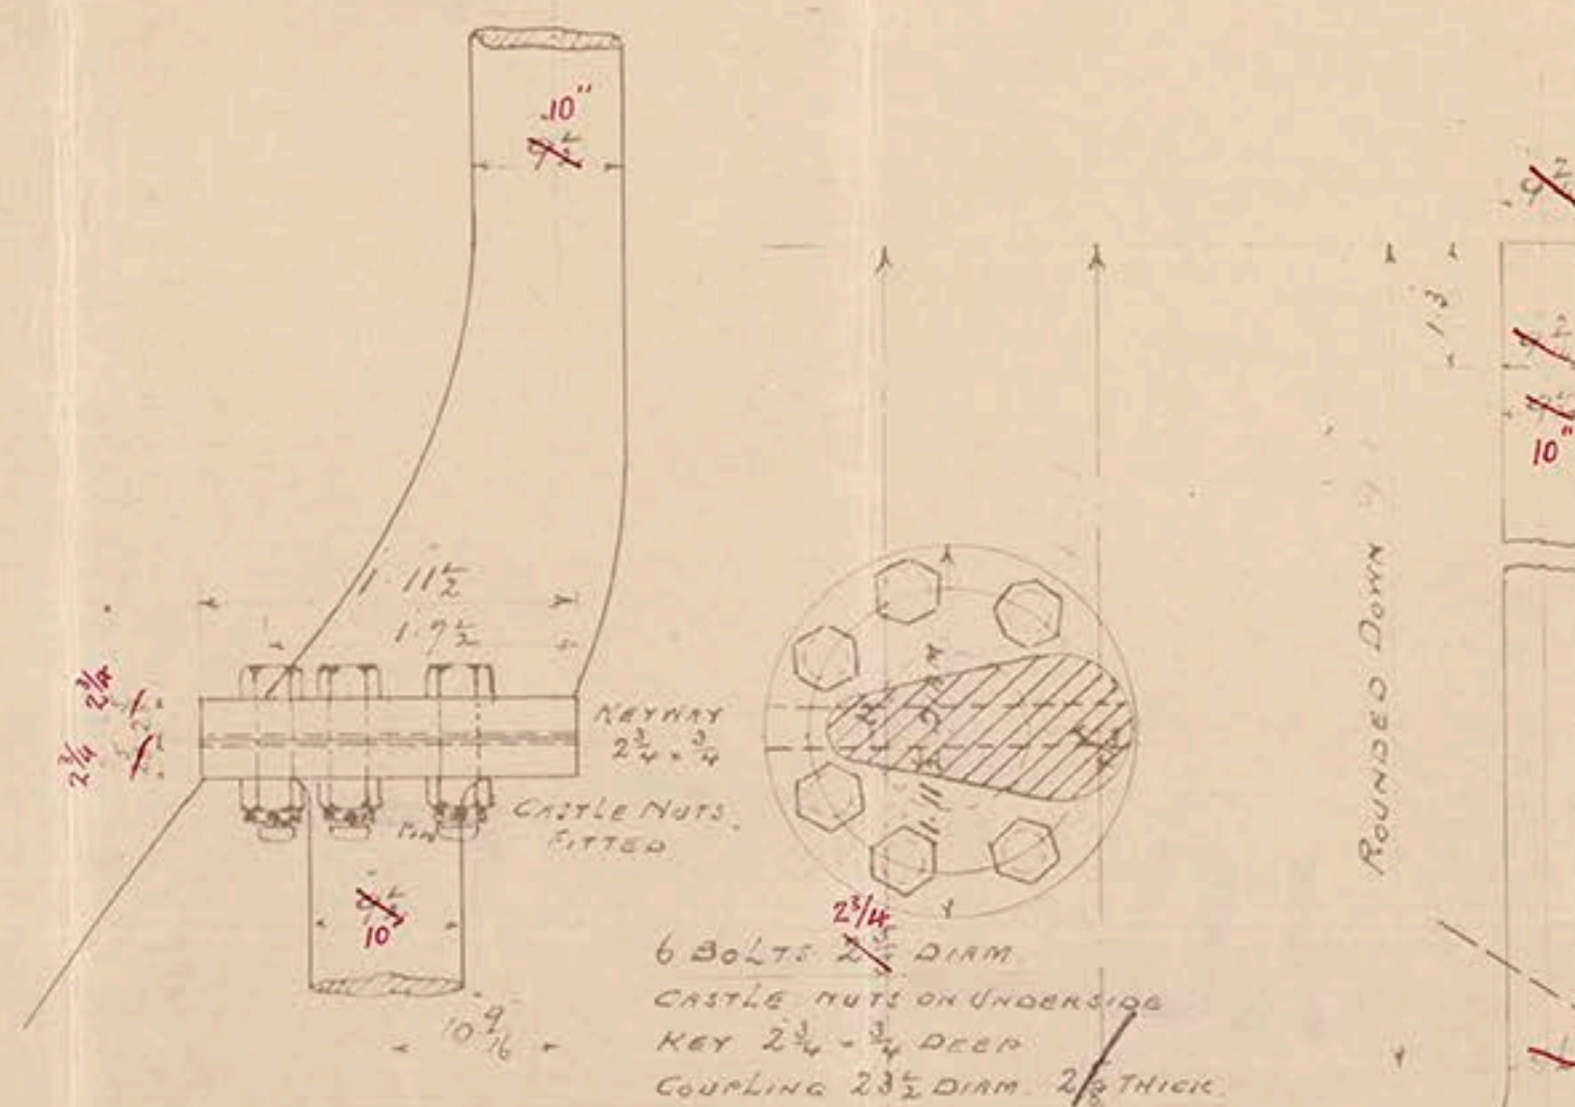 10"
9½
1·11½
1·7½
2¾
2¾
KEYWAY
2¾ × ¾
CASTLE NUTS
FITTED
PIN
9½
10
10 9/16
1·11½ DIAM
2¾
6 BOLTS DIAM
CASTLE NUTS ON UNDERSIDE
KEY 2¾ × ¾ DEEP
COUPLING 23½ DIAM. 2⅝ THICK.
ROUNDED DOWN
1·3
10"